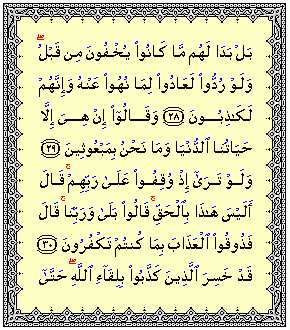 بَلْ بَدَا لَهُم مَّا كَانُوا۟ يُخْفُونَ مِن قَبْلُ ۖ
وَلَوْ رُدُّوا۟ لَعَادُوا۟ لِمَا نُهُوا۟ عَنْهُ وَإِنَّهُمْ
لَكَـٰذِبُونَ ﴿٢٨﴾ وَقَالُوٓا۟ إِنْ هِىَ إِلَّا
حَيَاتُنَا ٱلدُّنْيَا وَمَا نَحْنُ بِمَبْعُوثِينَ ﴿٢٩﴾
وَلَوْ تَرَىٰٓ إِذْ وُقِفُوا۟ عَلَىٰ رَبِّهِمْ ۚ قَالَ
أَلَيْسَ هَـٰذَا بِٱلْحَقِّ ۚ قَالُوا۟ بَلَىٰ وَرَبِّنَا ۚ قَالَ
فَذُوقُوا۟ ٱلْعَذَابَ بِمَا كُنتُمْ تَكْفُرُونَ ﴿٣٠﴾
قَدْ خَسِرَ ٱلَّذِينَ كَذَّبُوا۟ بِلِقَآءِ ٱللَّهِ ۖ حَتَّىٰٓ